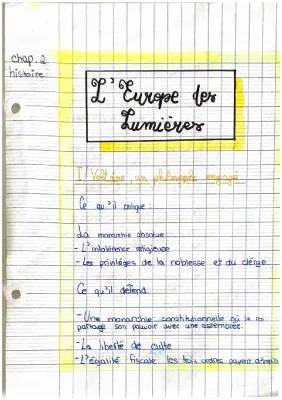 chap. 2
histoire
L'Europe des
Lumières
I/ Voltaire, un philosophe engagé
Ce qu'il critique :
La monarchie absolue
- L'intolérence religieuse
- Les priviléges de la noblesse et du clérge
Ce qu'il défend
- Une monarchie constitutionnelle où le roi
partage son pouvoir avec une assemblée.
- La liberté de culte
- L'égalité fiscale les trois ordres payent